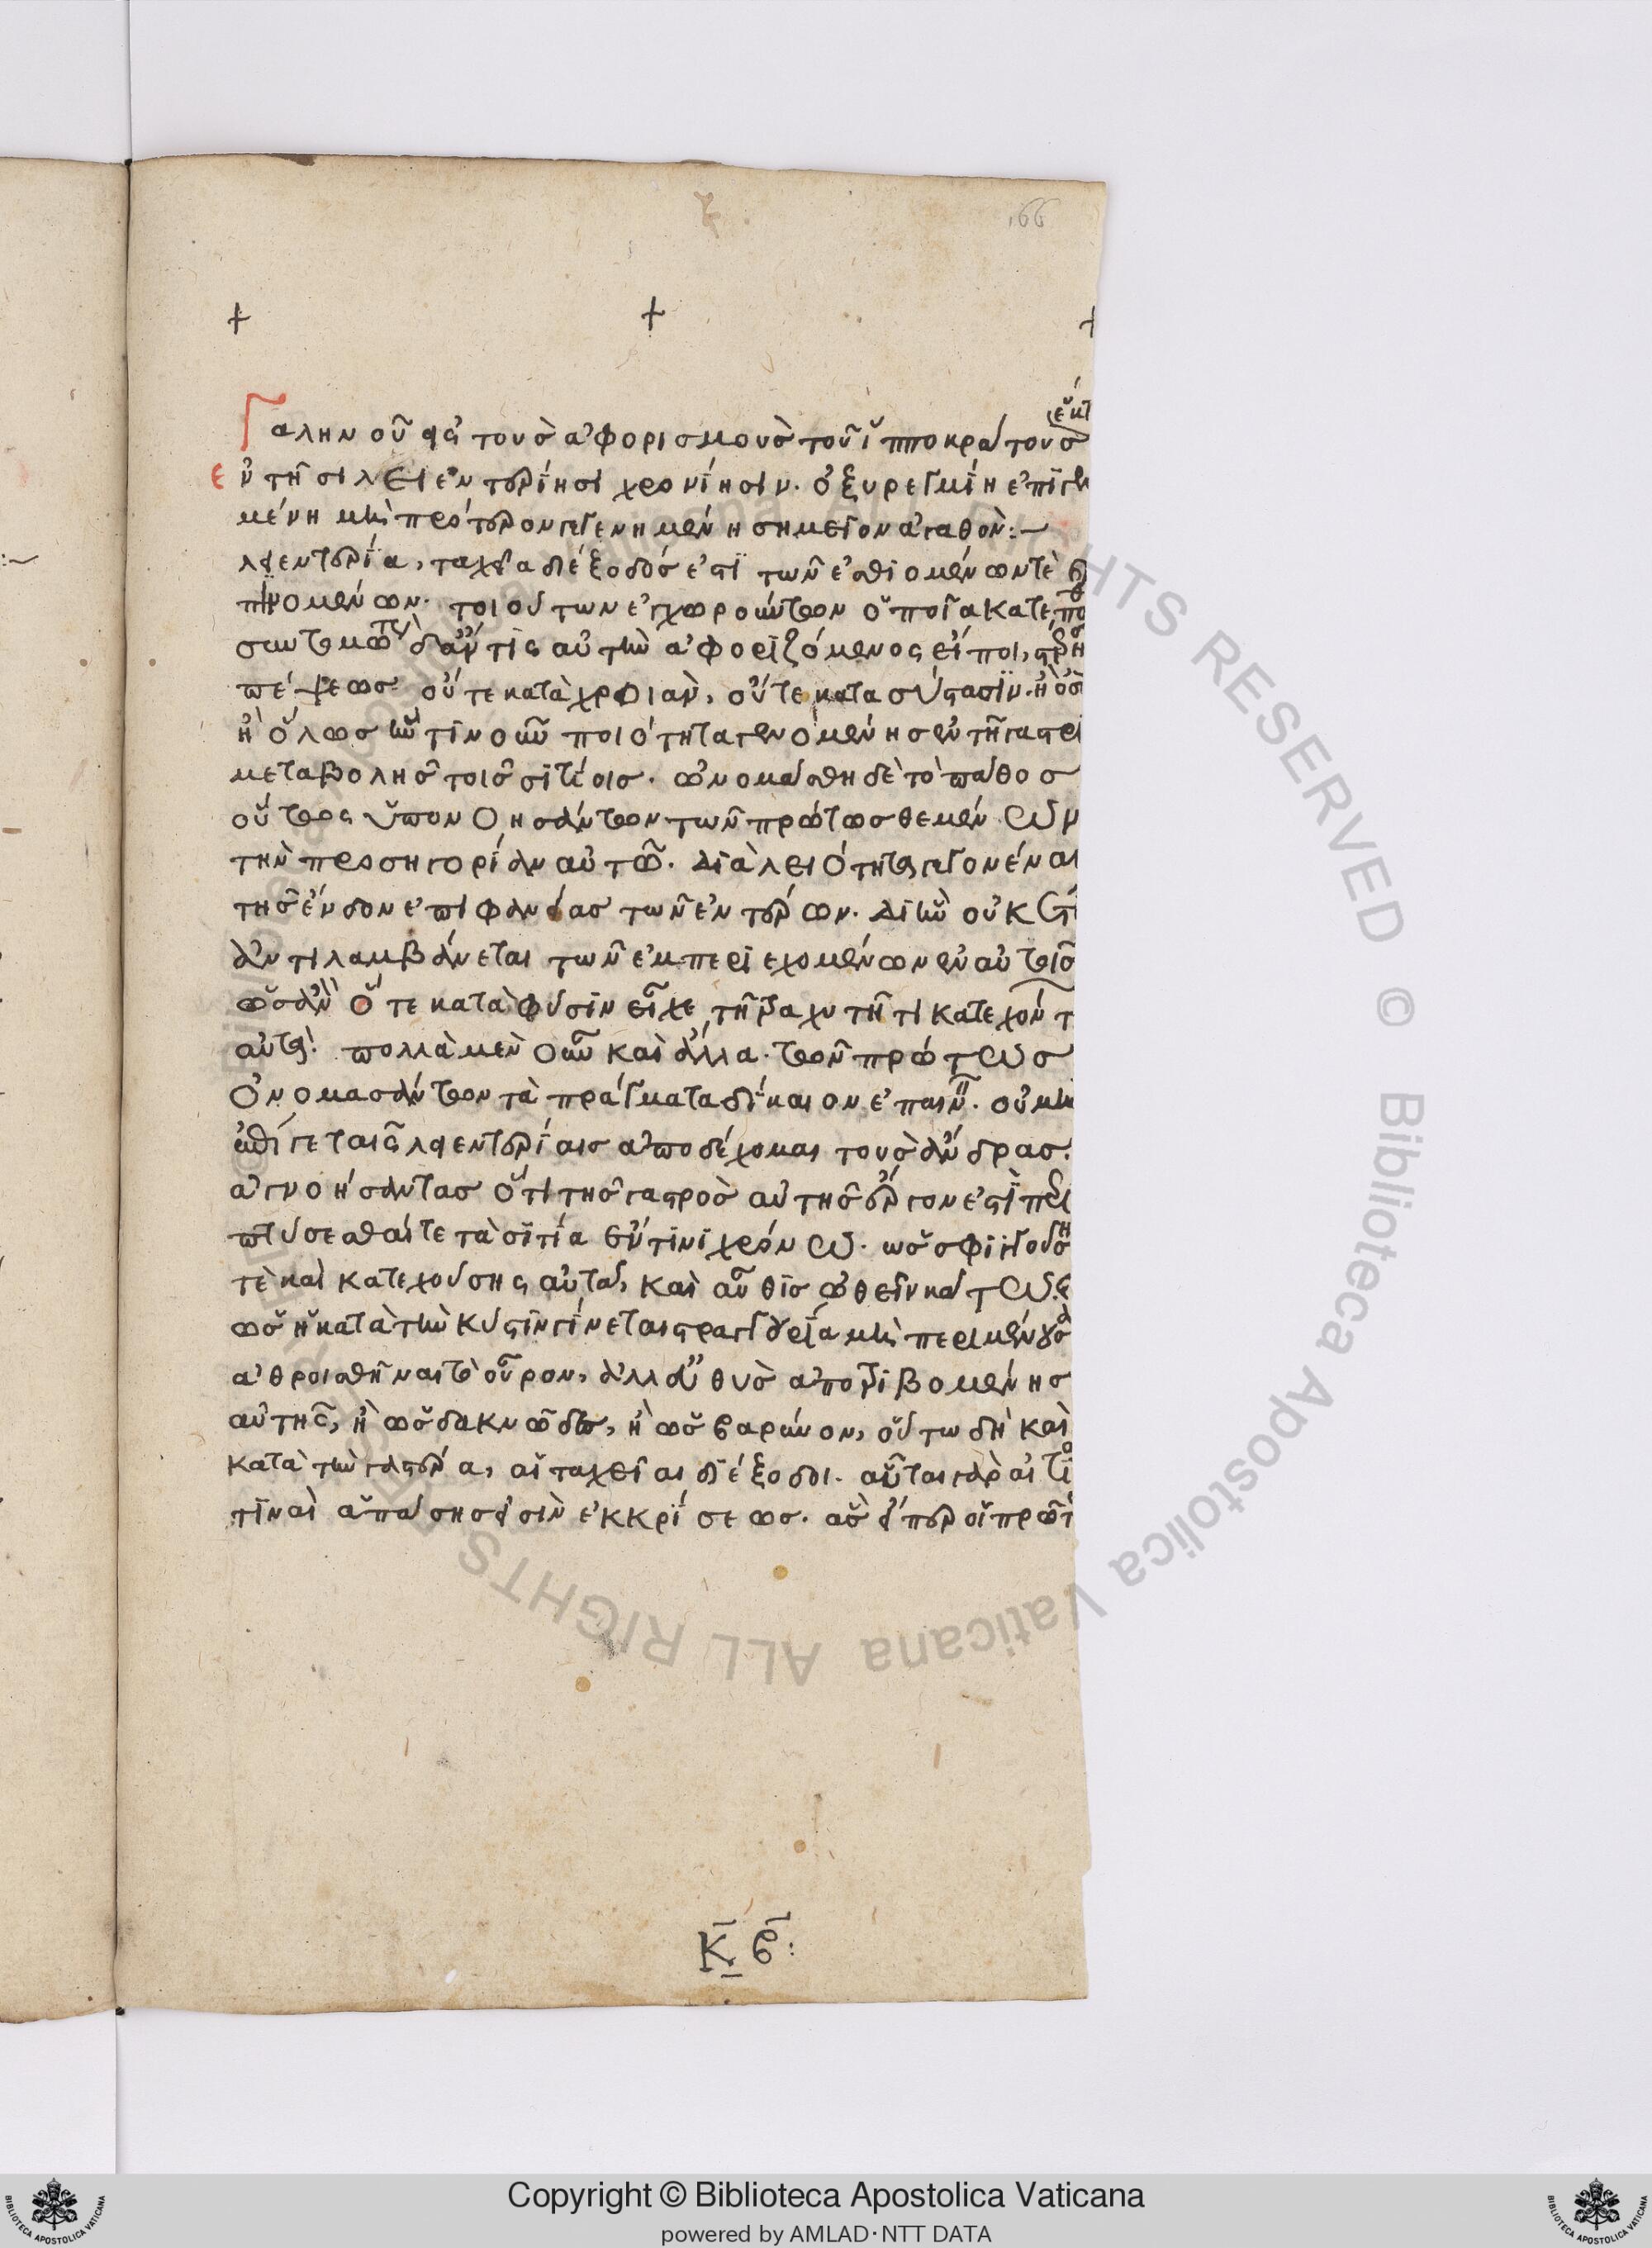 166
+ + +
Γαληνοῦ εἰς τοὺς ἀφορισμοὺς τοῦ ἱπποκράτους
ἐν τῆσι λειεντερίησι χρονίησιν. ὀξυρεγμίη ἐπιγε
μένη μὴ πρότερον γεγενημένη σημεῖον ἀγαθὸν:~
λειεντερία, ταχεῖα διέξοδός ἐστι τῶν ἐσθιομένων τὲ καὶ
πινομένων. τοιούτων ἐκχωρούντων ὁποῖα κατεπό
συντομώτερον δ' ἄν τις αὐτὴν ἀφοριζόμενος εἴποι, στέρη
πέψεως οὔτε κατὰ χροιὰν, οὔτε κατα σύστασιν. ἢ ὀσ
ἢ ὅλως ἥν τινοῦν ποιότητα γενομένης ἐν τῆ γαστρὶ
μεταβολῆς τοῖς σιτίοις. ὠνομάσθη δὲ τὸ πάθος
οὕτως ὑπονοησάντων τῶν πρώτως θεμένων
τὴν προσηγορίαν αὐτῶ. διὰ λειότητα γεγονέναι
τῆς ἔνδον ἐπιφανείας τῶν ἐντέρων. δι' ἣν οὐκ ἔτι
ἀντιλαμβάνεται τῶν ἐμπεριεχομένων ἐν αὐτοῖς
ὥσπερ ὅτε κατὰ φύσιν εἶχε τῆ τραχυτῆτι κατεχόντ
αὐτά. πολλὰ μὲν οὖν καὶ ἄλλα. τῶν πρώτως
ὀνομασάντων τὰ πράγματα δίκαιον ἐπαινεῖν. οὐ μὴν
ἐπί γε ταῖς λειεντερίαις ἀποδέχομαι τοὺς ἄνδρας.
ἀγνοήσαντας ὅτι τῆς γαστρὸς αὐτῆς ἔργον ἐστὶ περι
πτύσεσθαί τε τὰ σιτία ἔν τινι χρόνω. ὡς σφιγγούσης
τὲ καὶ κατεχούσης αὐτά, καὶ αὖθις ὠθεῖν κάτω.
ὡς ἡ κατὰ τὴν κύστιν γίνεται στραγγουρία μὴ περιμένουσα
ἀθροισθῆναι τὸ οὖρον, ἀλλ' εὐθὺς ἀποτριβομένης
αὐτῆς, ἢ ὡς δακνῶδες, ἢ ὡς βαρύνον, οὕτω δὴ καὶ
κατὰ τὴν γαστέρα, αἱ ταχεῖαι διέξοδοι. αὗται γὰρ αἰτί
τιναὶ ἁπάσης εἰσὶν ἐκκρίσεως. ἃς εἴπερ οἱ πρῶτ
κ̅ϛ̅:
Copyright © Biblioteca Apostolica Vaticana
powered by AMLAD·NTT DATA